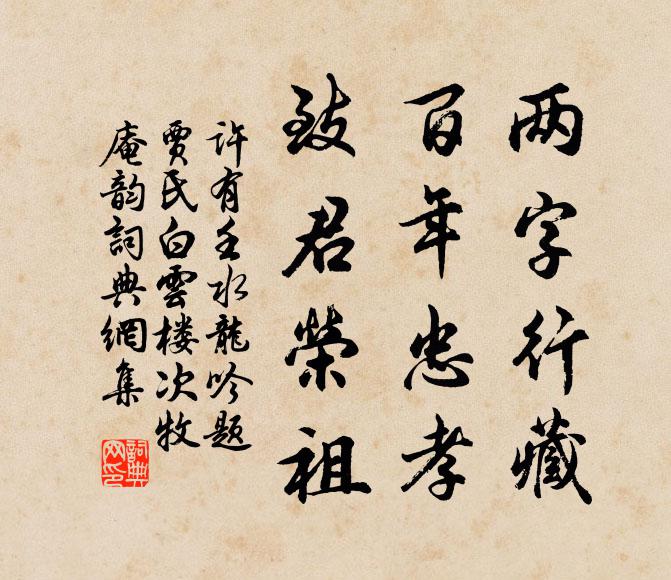 两字行藏
百年忠孝
致君荣祖
许有壬水龍吟题
贾氏白雲楼次牧
庵韵詞典網集
詞典
网印